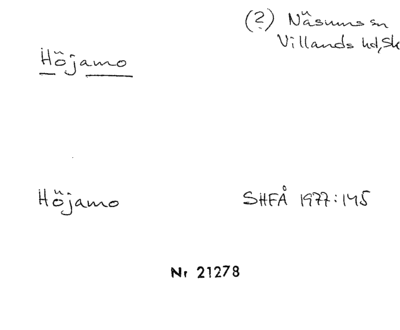 (2) Näsums sn
Villands hd, Sk
Höjamo
Höjamo SHFÅ 1977:145
Nr 21278